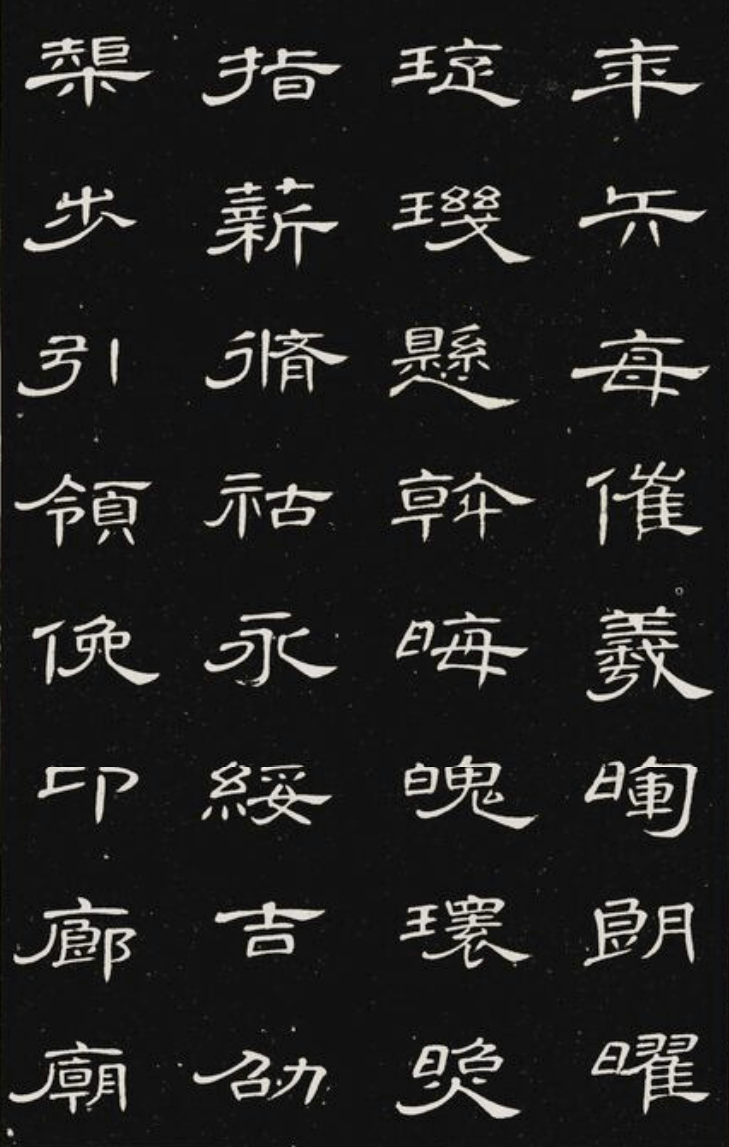 年矢每催羲暉朗曜
琁璣懸斡晦魄環照
指薪脩祜永綏吉劭
榘步引領俛卬廊廟